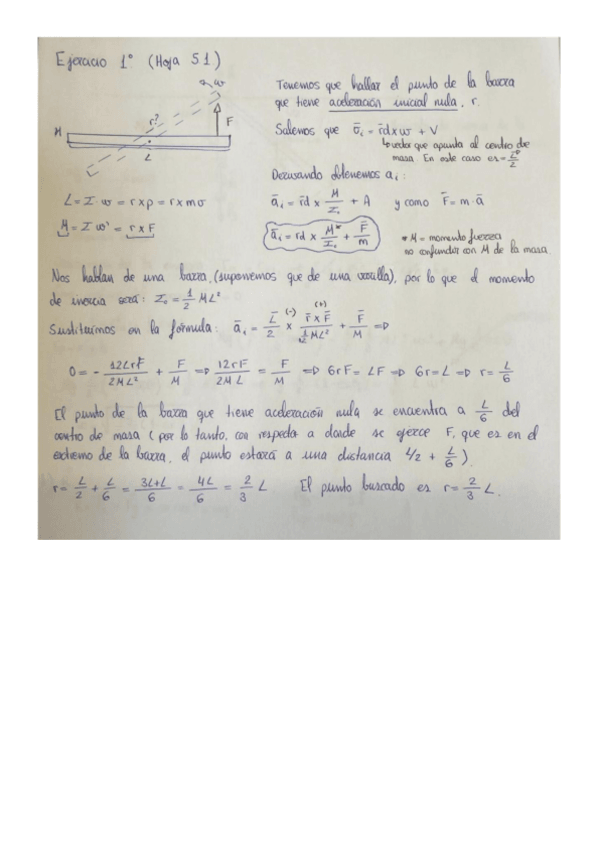 Ejercicio 1º (Hoja 5.1)
w
r?
F
M
L
Tenemos que hallar el punto de la barra
que tiene aceleración inicial nula, r.
Sabemos que v̄₁ = r̄d x w + V
↳ que apunta al centro de
masa. En este caso es = L/2
Derivando obtenemos a₁:
L = I · w = r x p = r x mv
M = I w' = r x F
ā₁ = r̄d x M/I₀ + A y como F̄ = m · ā
ā₁ = rd x M*/I₀ + F̄/m
* M = momento fuerza
no confundir con M de la masa.
Nos hablan de una barra, (suponemos que de una varilla), por lo que el momento
de inercia será: I₀ = 1/2 ML²
Sustituimos en la fórmula: ā₁ = L̄/2 (-) x (+) r̄ x F̄ / 1/12 ML² + F̄/M =>
0 = - 12LrF/2ML² + F/M => 12rF/2ML = F/M => 6rF = LF => 6r = L => r = L/6
El punto de la barra que tiene aceleración nula se encuentra a L/6 del
centro de masa (por lo tanto, con respecto a donde se ejerce F, que es en el
extremo de la barra, el punto estará a una distancia L/2 + L/6).
r = L/2 + L/6 = 3L+L/6 = 4L/6 = 2/3 L El punto buscado es r = 2/3 L.